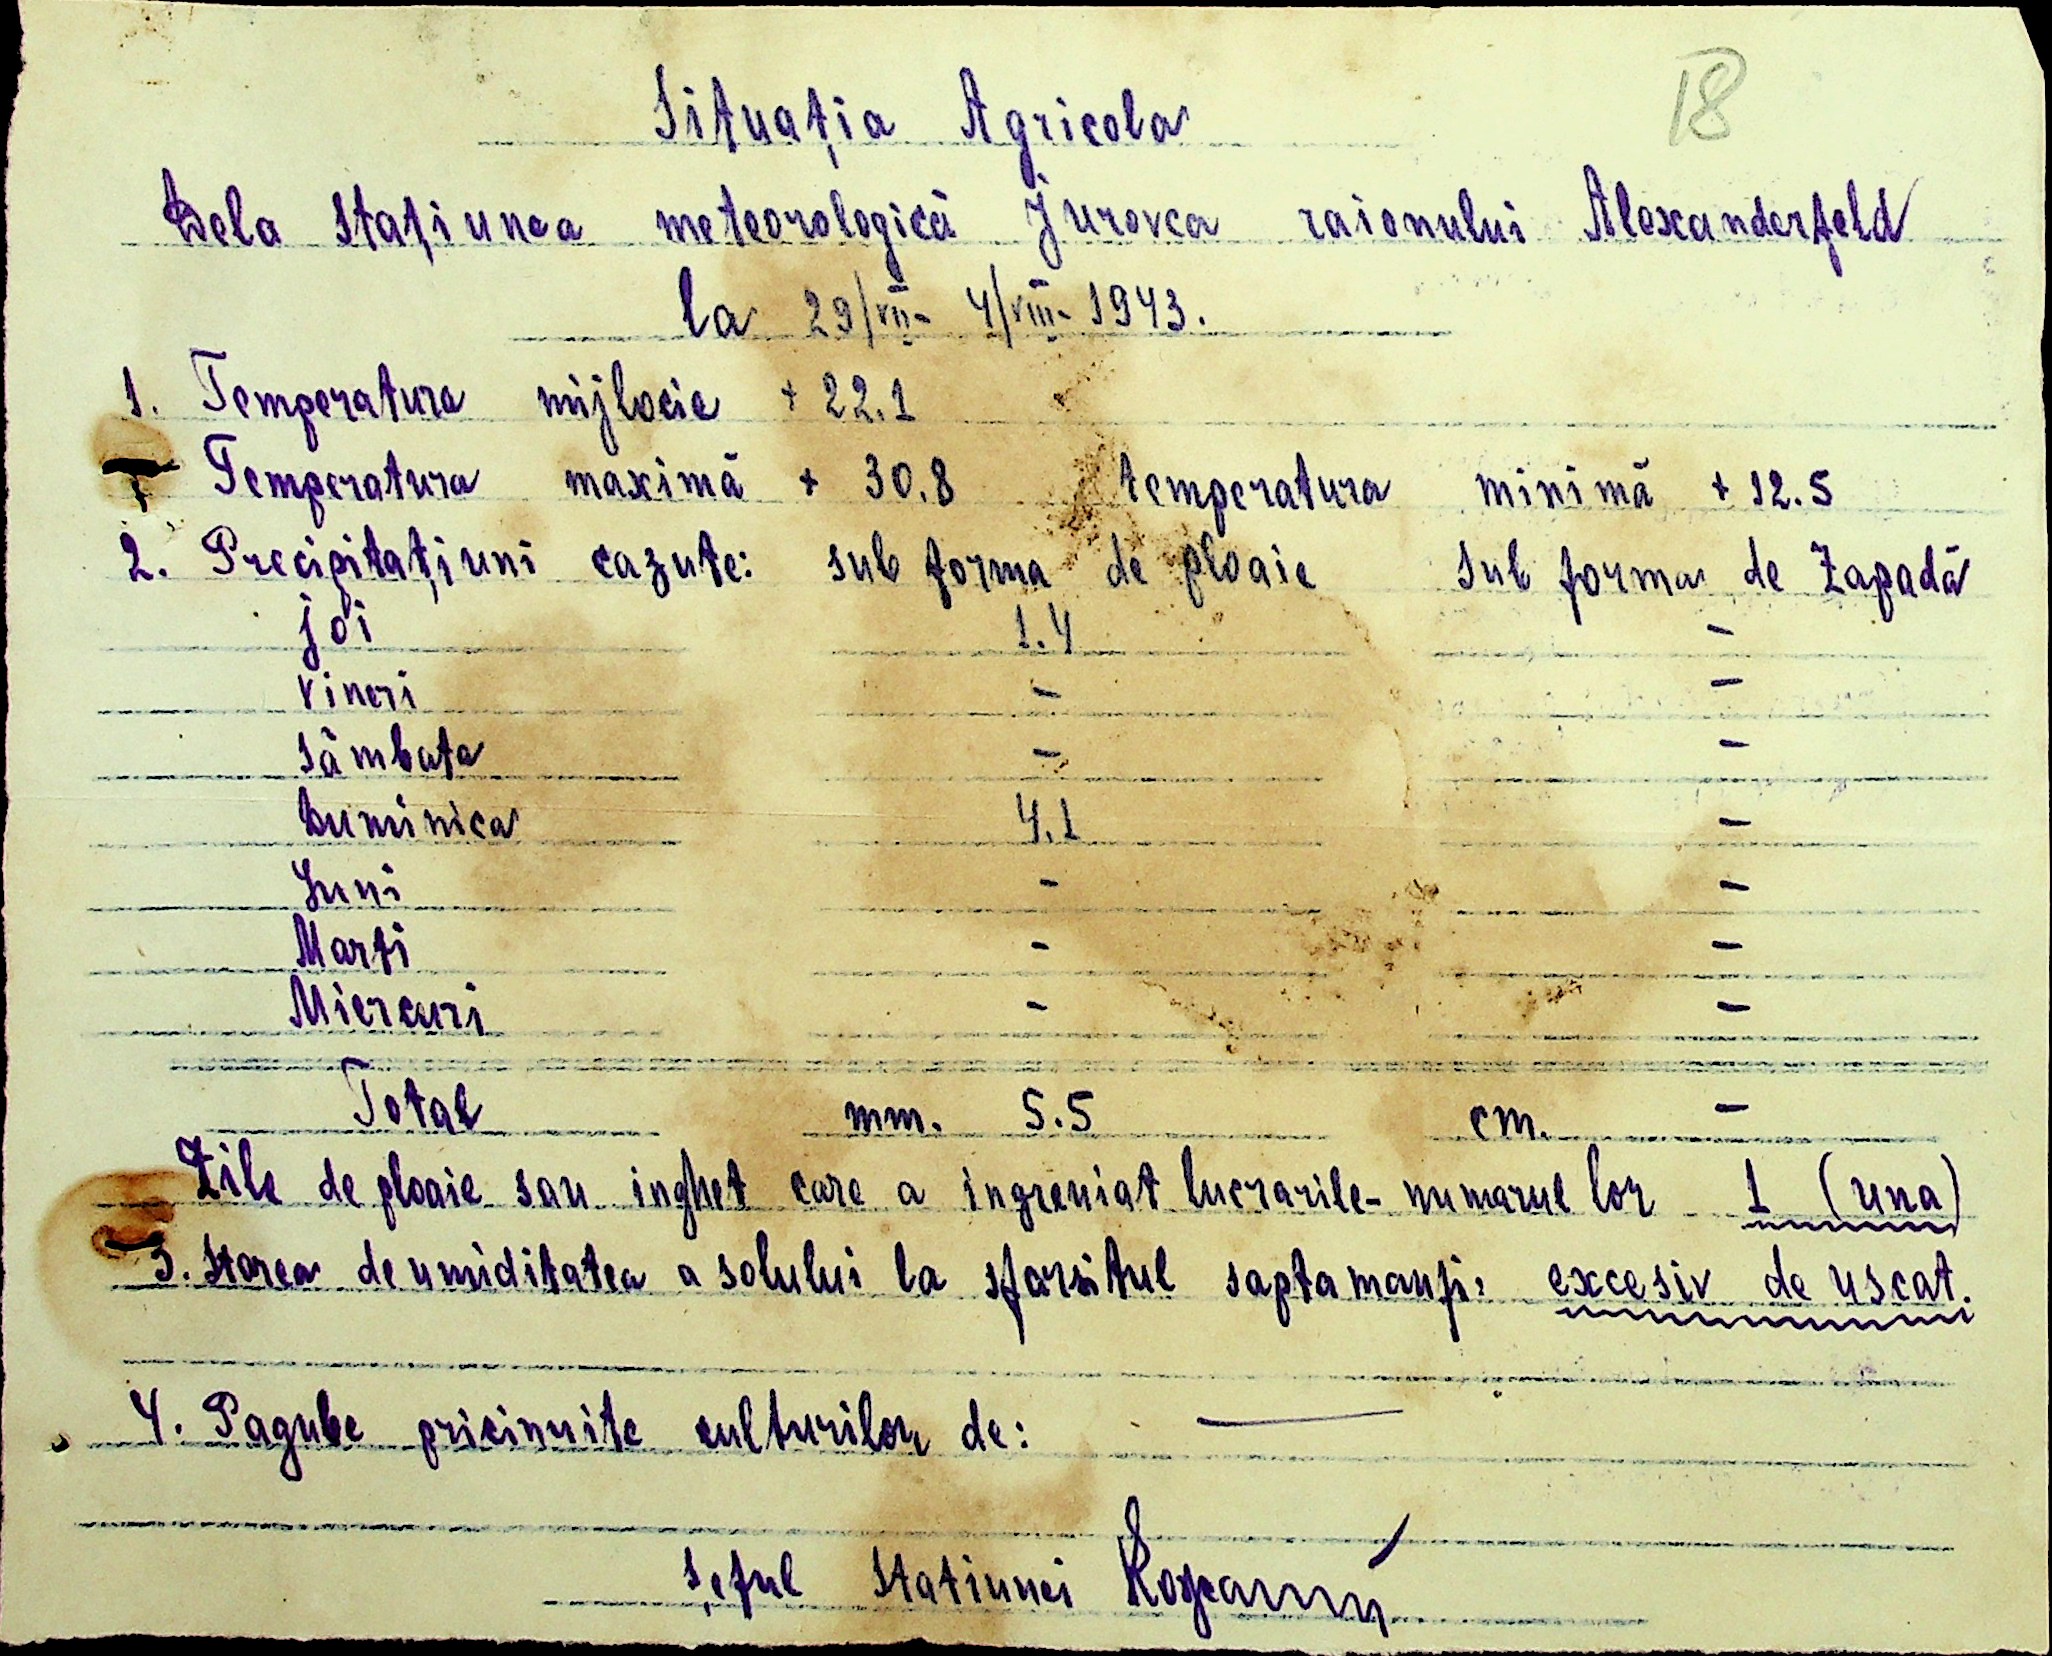 18
Situația Agricola
Dela stațiunea meteorologică Jurovca raionului Alexanderfeld
la 29/VII - 4/VIII - 1943.
1. Temperatura mijlocie + 22.1
Temperatura maximă + 30.8 temperatura minimă + 12.5
2. Precipitațiuni cazute: sub forma de ploaie sub forma de Zapadă
joi 1.4 –
vineri – –
sâmbata – –
Duminica 4.1 –
Luni – –
Marți – –
Miercuri – –
Total mm. 5.5 cm. –
Zile de ploaie sau inghet care a ingreuiat lucrarile - numarul lor 1 (una)
3. Starea de umiditatea a solului la sfarsitul saptamanții: excesiv de uscat.
4. Pagube pricinuite culturilor de: —
Șeful Statiunei